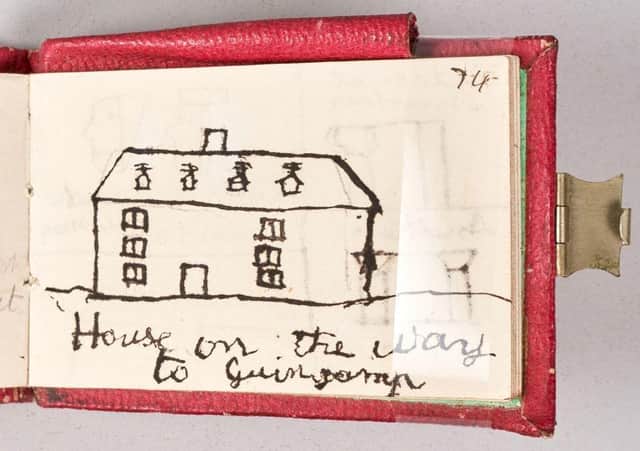 74
House on the way
to Guingamp